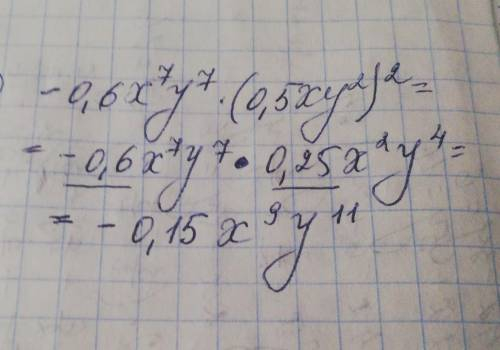 -0,6x⁷y⁷·(0,5xy²)²=
= -0,6x⁷y⁷·0,25x²y⁴=
= -0,15x⁹y¹¹